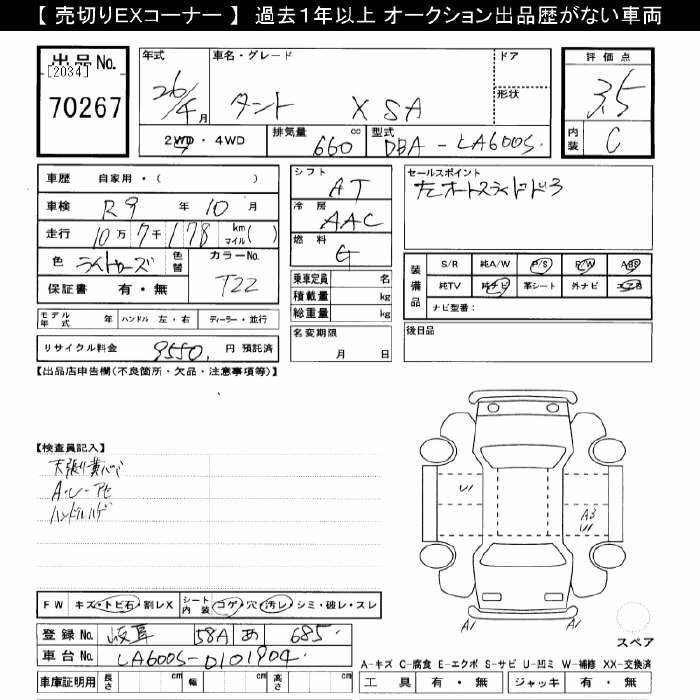 【 売切りEXコーナー 】 過去1年以上 オークション出品歴がない車両
出品No.
[2034]
70267
年式
26/4月
車名・グレード
タント X SA
ドア
形状
2WD・4WD
排気量 660 cc
型式 DBA-LA600S
評価点
3.5
内装 C
車歴 自家用・( )
車検 R9 年 10 月
走行 10万 7千 178 km マイル( )
色 ライトローズ 色替
カラーNo. T22
保証書 有・無
モデル年式 年 ハンドル 左・右 ディーラー・並行
リサイクル料金 9550. 円 預託済
シフト AT
冷房 AAC
燃料 G
乗車定員 名
積載量 kg
総重量 kg
名変期限 月 日
セールスポイント
左オートスライドドア
装備品
S/R 純A/W P/S P/W
純TV 純ナビ 革シート 外ナビ
ナビ型番:
後日品
【出品店申告欄(不良箇所・欠品・注意事項等)】
【検査員記入】
ハンドルハゲ
FW キズ・トビ石・割レX
シート内装 コゲ・穴・汚レ・シミ・破レ・スレ
登録No. 岐阜 58A あ 685
車台No. LA600S-0101904
車庫証明用 長さ cm 幅 cm 高さ cm
A3
A1 A1
スペア
A-キズ C-腐食 E-エクボ S-サビ U-凹ミ W-補修 XX-交換済
工具 有・無 ジャッキ 有・無